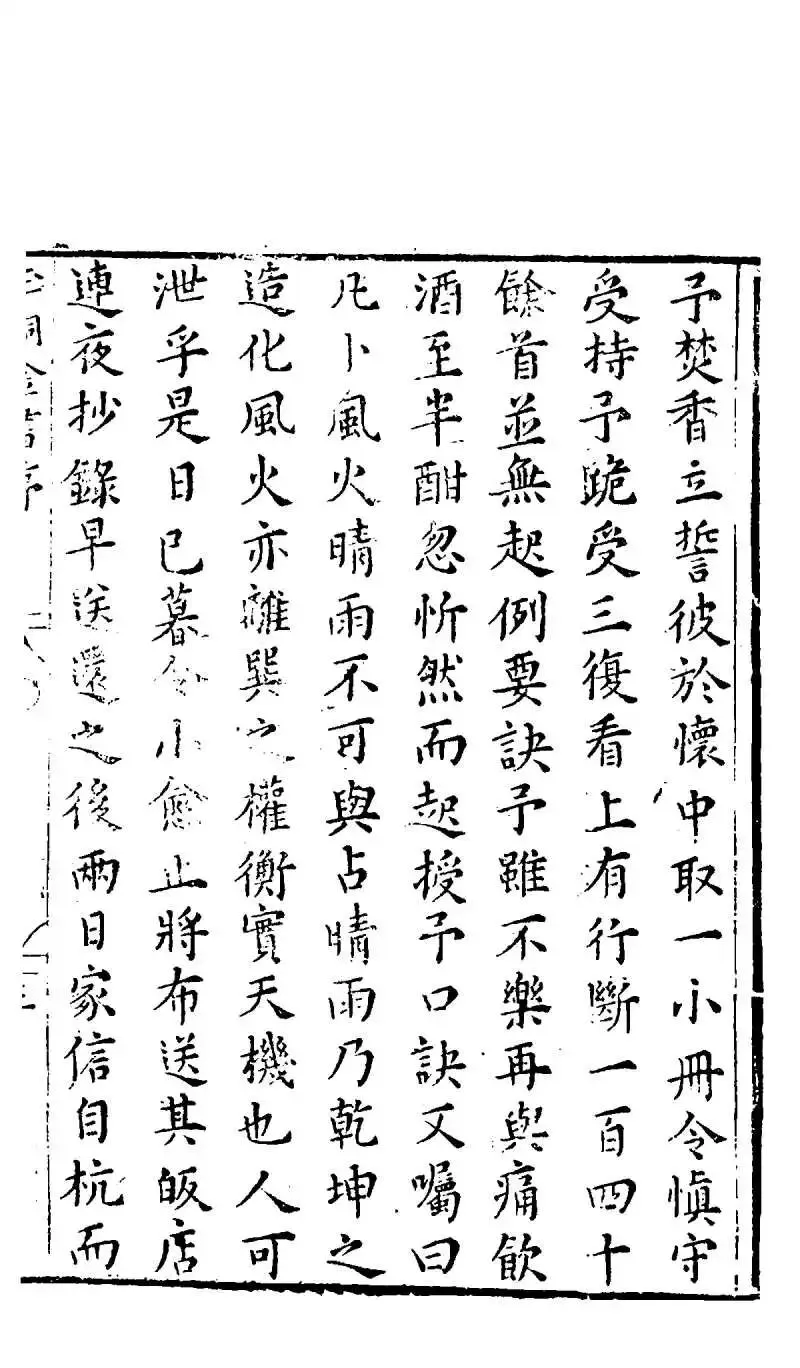 予焚香立誓彼於懷中取一小冊令慎守
受持予跪受三復看上有行斷一百四十
餘首並無起例要訣予雖不樂再與痛飲
酒至半酣忽忻然而起授予口訣又囑曰
凡卜風火晴雨不可與占晴雨乃乾坤之
造化風火亦離巽之權衡實天機也人可
泄乎是日已暮令小㑹止將布送其皈店
連夜抄錄早送還之後兩日家信自杭而
玉洞金書序